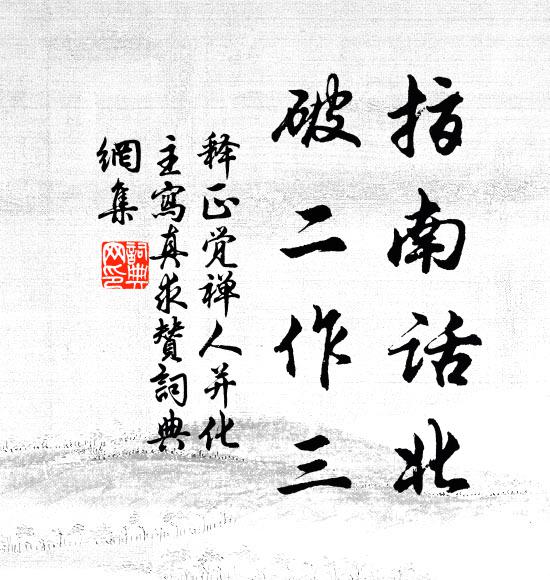 指南话北
破二作三
释正觉禅人并化
主寫真求賛詞典
網集
詞典
网